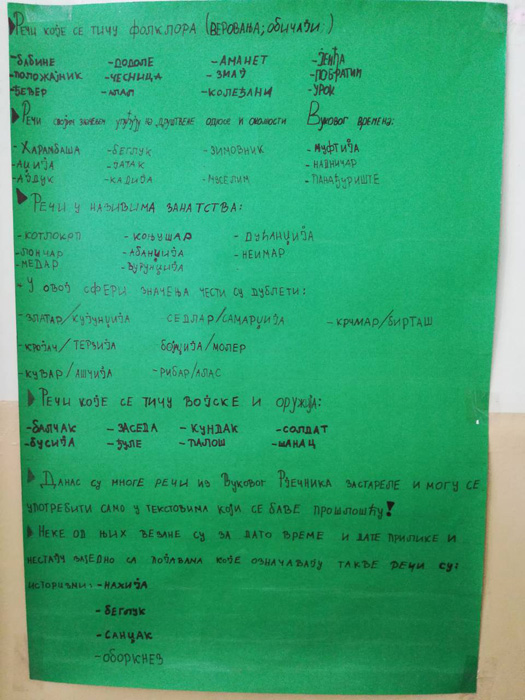 РЕЧИ КОЈЕ СЕ ТИЧУ ФОЛКЛОРА (ВЕРОВАЊА; ОБИЧАЈИ):
-БАБИНЕ -ДОДОЛЕ -АМАНЕТ -ЈЕНЂА
-ПОЛОЖАЈНИК -ЧЕСНИЦА -ЗМАЈ -ПОБРАТИМ
-ЂЕВЕР -АЛАЛ -КОЛЕЂАНИ -УРОК
РЕЧИ СВОЈИМ ЗНАЧЕЊЕМ УПУЋУЈУ НА ДРУШТВЕНЕ ОДНОСЕ И ОКОЛНОСТИ ВУКОВОГ ВРЕМЕНА:
-ХАРАМБАША -БЕГЛУК -ЗИМОВНИК -МУФТИЈА
-АЏИЈА -ЈАТАК -НАДНИЧАР
-АЈДУК -КАДИЈА -МУСЕЛИМ -ПАНАЂУРИШТЕ
РЕЧИ У НАЗИВИМА ЗАНАТСТВА:
-КОТЛОКРП -КОЊУШАР -ДУЋАНЏИЈА
-ЛОНЧАР -АБАНЏИЈА -НЕИМАР
-МЕДАР -ФУРУНЏИЈА
-У ОВОЈ СФЕРИ ЗНАЧЕЊА ЧЕСТИ СУ ДУБЛЕТИ:
-ЗЛАТАР/КУЈУНЏИЈА СЕДЛАР/САМАРЏИЈА -КРЧМАР/БИРТАШ
-КРОЈАЧ/ТЕРЗИЈА БОЈЏИЈА/МОЛЕР
-КУВАР/АШЧИЈА -РИБАР/АЛАС
РЕЧИ КОЈЕ СЕ ТИЧУ ВОЈСКЕ И ОРУЖЈА:
-БАЛЧАК -ЗАСЕДА -КУНДАК -СОЛДАТ
-БУСИЈА -ЂУЛЕ -ПАЛОШ -ШАНАЦ
ДАНАС СУ МНОГЕ РЕЧИ ИЗ ВУКОВОГ РЈЕЧНИКА ЗАСТАРЕЛЕ И МОГУ СЕ
УПОТРЕБИТИ САМО У ТЕКСТОВИМА КОЈИ СЕ БАВЕ ПРОШЛОШЋУ!
НЕКЕ ОД ЊИХ ВЕЗАНЕ СУ ЗА ДАТО ВРЕМЕ И ДАТЕ ПРИЛИКЕ И
НЕСТАЈУ ЗАЈЕДНО СА ПОЈАВАМА КОЈЕ ОЗНАЧАВАЈУ ТАКВЕ РЕЧИ СУ:
ИСТОРИЗМИ: -НАХИЈА
-БЕГЛУК
-САНЏАК
-ОБОРКНЕЗ